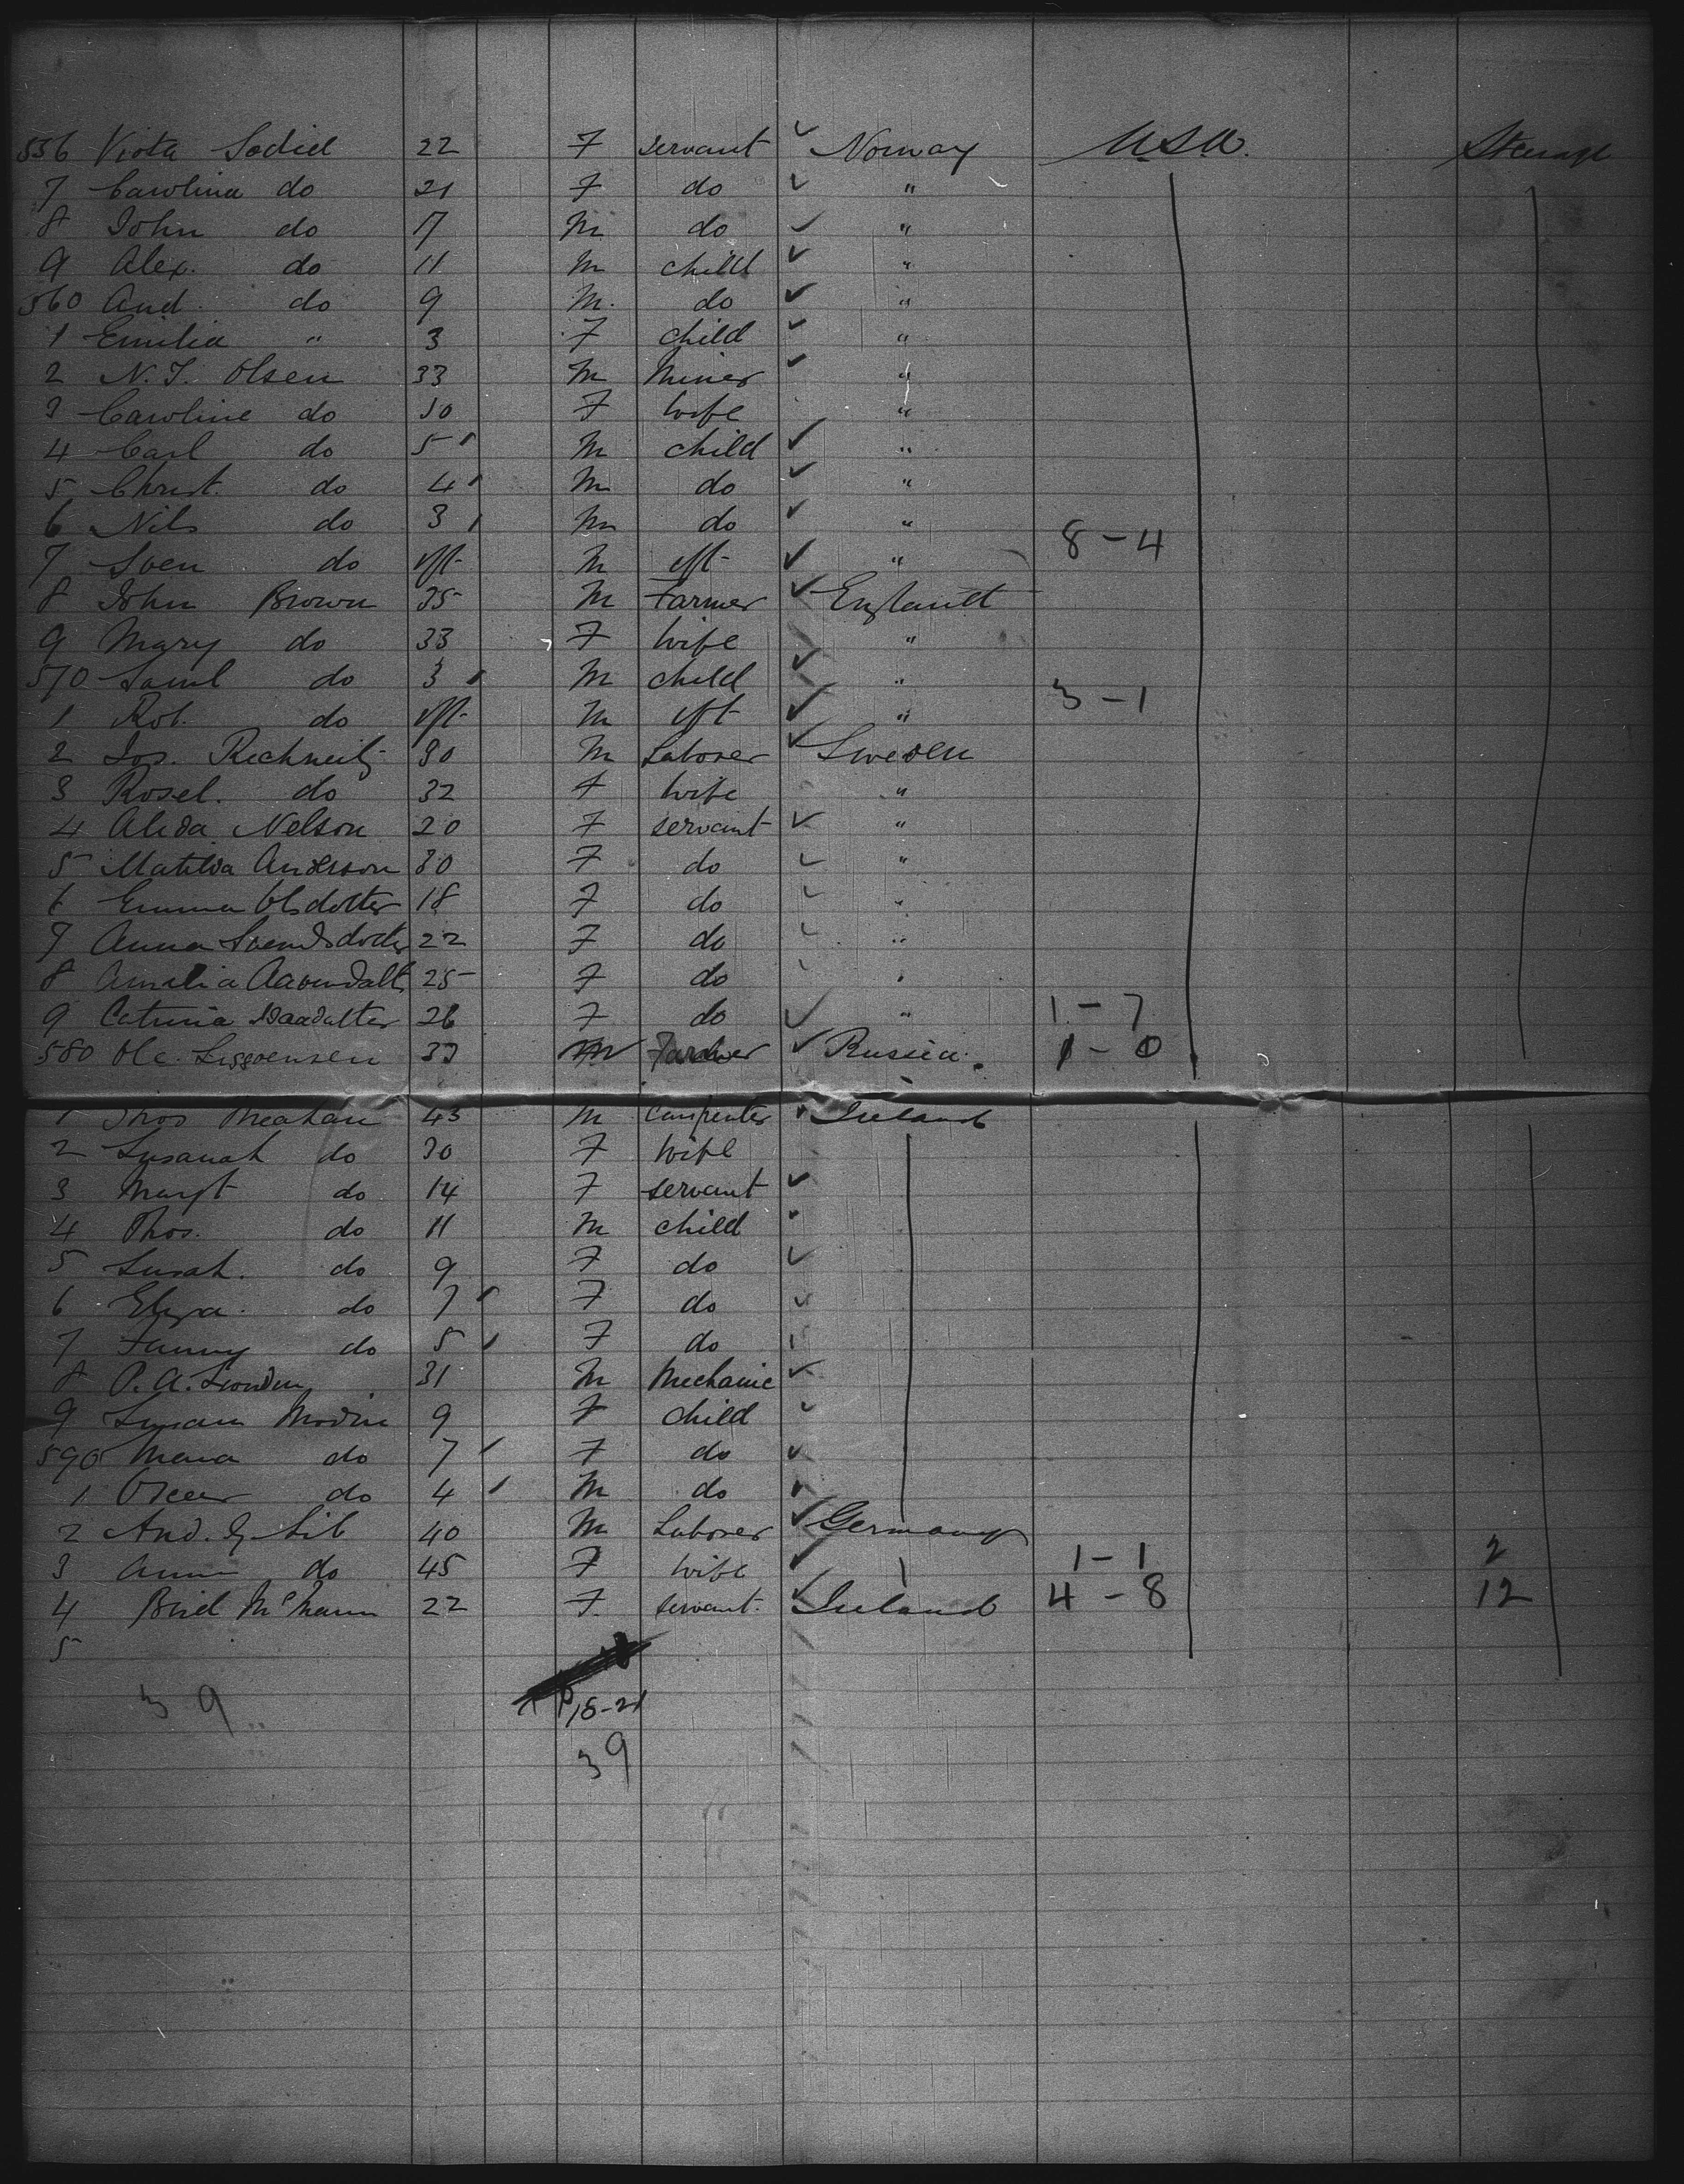 556 Viota Sodiel 22 F servant ✓ Norway U.S.A. Steerage
7 Carolina do 21 F do ✓ "
8 John do 17 M do ✓ "
9 Alex. do 11 M child ✓ "
560 And. do 9 M. do ✓ "
1 Emilia " 3 F child ✓ "
2 N. J. Olsen 33 M Miner ✓ "
3 Caroline do 30 F wife "
4 Carl do 5 M child ✓ "
5 Christ. do 4 M do ✓ "
6 Nils do 3 M do ✓ "
7 Sven do ift M ift ✓ " 8-4
8 John Brown 35 M Farmer ✓ England
9 Mary do 33 F wife "
570 Saml do 3 M child ✓ "
1 Rob. do ift M ift ✓ " 3-1
2 Jos. 30 M Laborer ✓ Sweden
3 Rosel. do 32 F wife "
4 Alida Nelson 20 F servant ✓ "
5 Matilda Anderson 30 F do ✓ "
6 Emma Olsdotter 18 F do ✓ "
7 Anna Svendsdotter 22 F do ✓ "
8 Amalia 25 F do ✓ "
9 Catrina 26 F do ✓ " 1-7
580 Ole 33 M Farmer ✓ Russia. 1-0
1 Thos Meahan 43 M Carpenter ✓ Ireland
2 Susanah do 30 F wife
3 Margt do 14 F servant ✓
4 Thos. do 11 M child
5 Susah. do 9 F do ✓
6 Eliza. do 7 F do ✓
7 Fanny do 5 F do
8 P. A. 31 M Mechanic ✓
9 Susan Modin 9 F child ✓
590 Maria do 7 F do ✓
1 Oscar do 4 M do
2 And. 40 M Laborer ✓ Germany
3 Anna do 45 F wife ✓ 1-1 2
4 Brid McMann 22 F. servant. ✓ Ireland 4-8 12
5
39
18-21
39